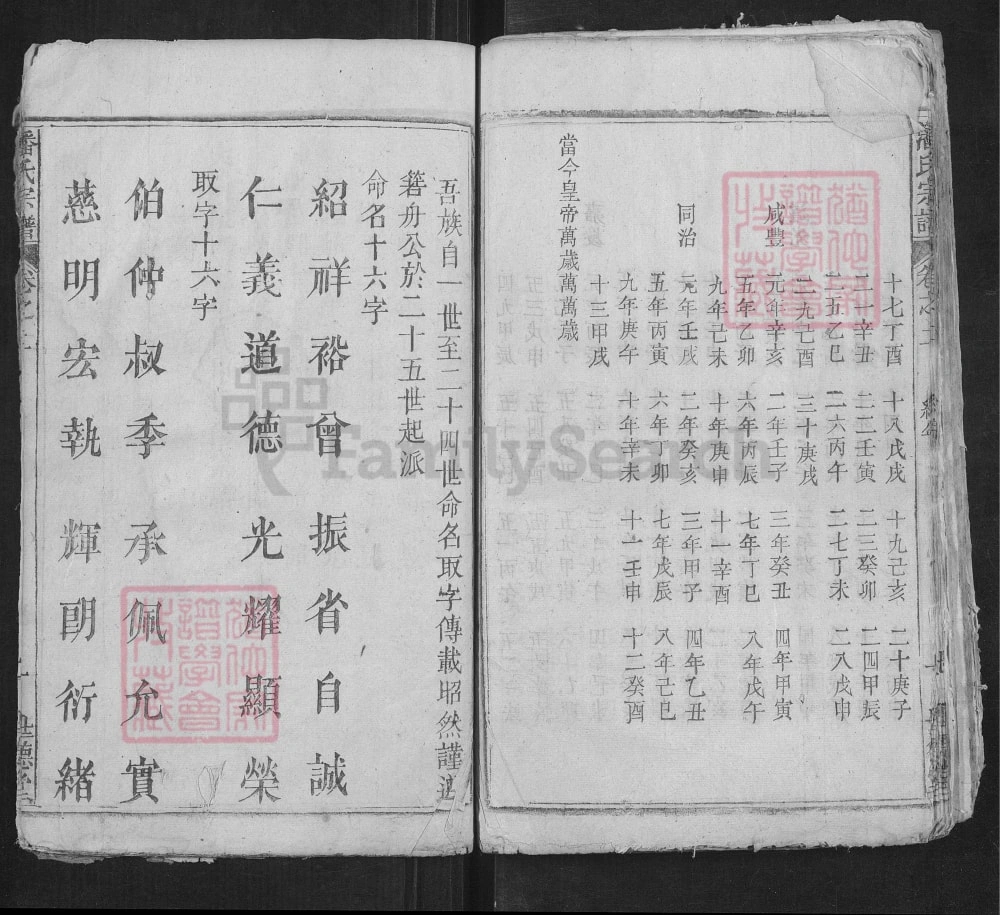 潘氏宗譜
十七丁酉 十八戊戌 十九己亥 二十庚子
二一辛丑 二二壬寅 二三癸卯 二四甲辰
二五乙巳 二六丙午 二七丁未 二八戊申
二九己酉 三十庚戌
咸豐 元年辛亥 二年壬子 三年癸丑 四年甲寅
五年乙卯 六年丙辰 七年丁巳 八年戊午
九年己未 十年庚申 十一辛酉
同治 元年壬戌 二年癸亥 三年甲子 四年乙丑
五年丙寅 六年丁卯 七年戊辰 八年己巳
九年庚午 十年辛未 十一壬申 十二癸酉
十三甲戌
當今皇帝萬歲萬萬歲
吾族自一世至二十四世命名取字傳載昭然謹遵
箬舟公於二十五世起派
命名十六字
紹祥裕會振省自誠
仁義道德光耀顯榮
取字十六字
伯仲叔季承佩允實
慈明宏執輝朗衍緒
潘氏宗譜
世德堂
FamilySearch